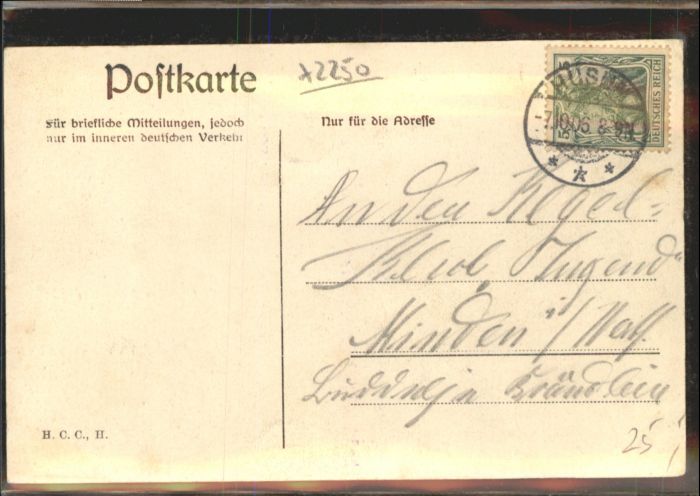 Postkarte
x2250
Für briefliche Mitteilungen, jedoch
nur im inneren deutschen Verkehr
Nur für die Adresse
DEUTSCHES REICH
An den Kegel-
Klub Jugend
Minden i/
H. C. C., H.
25